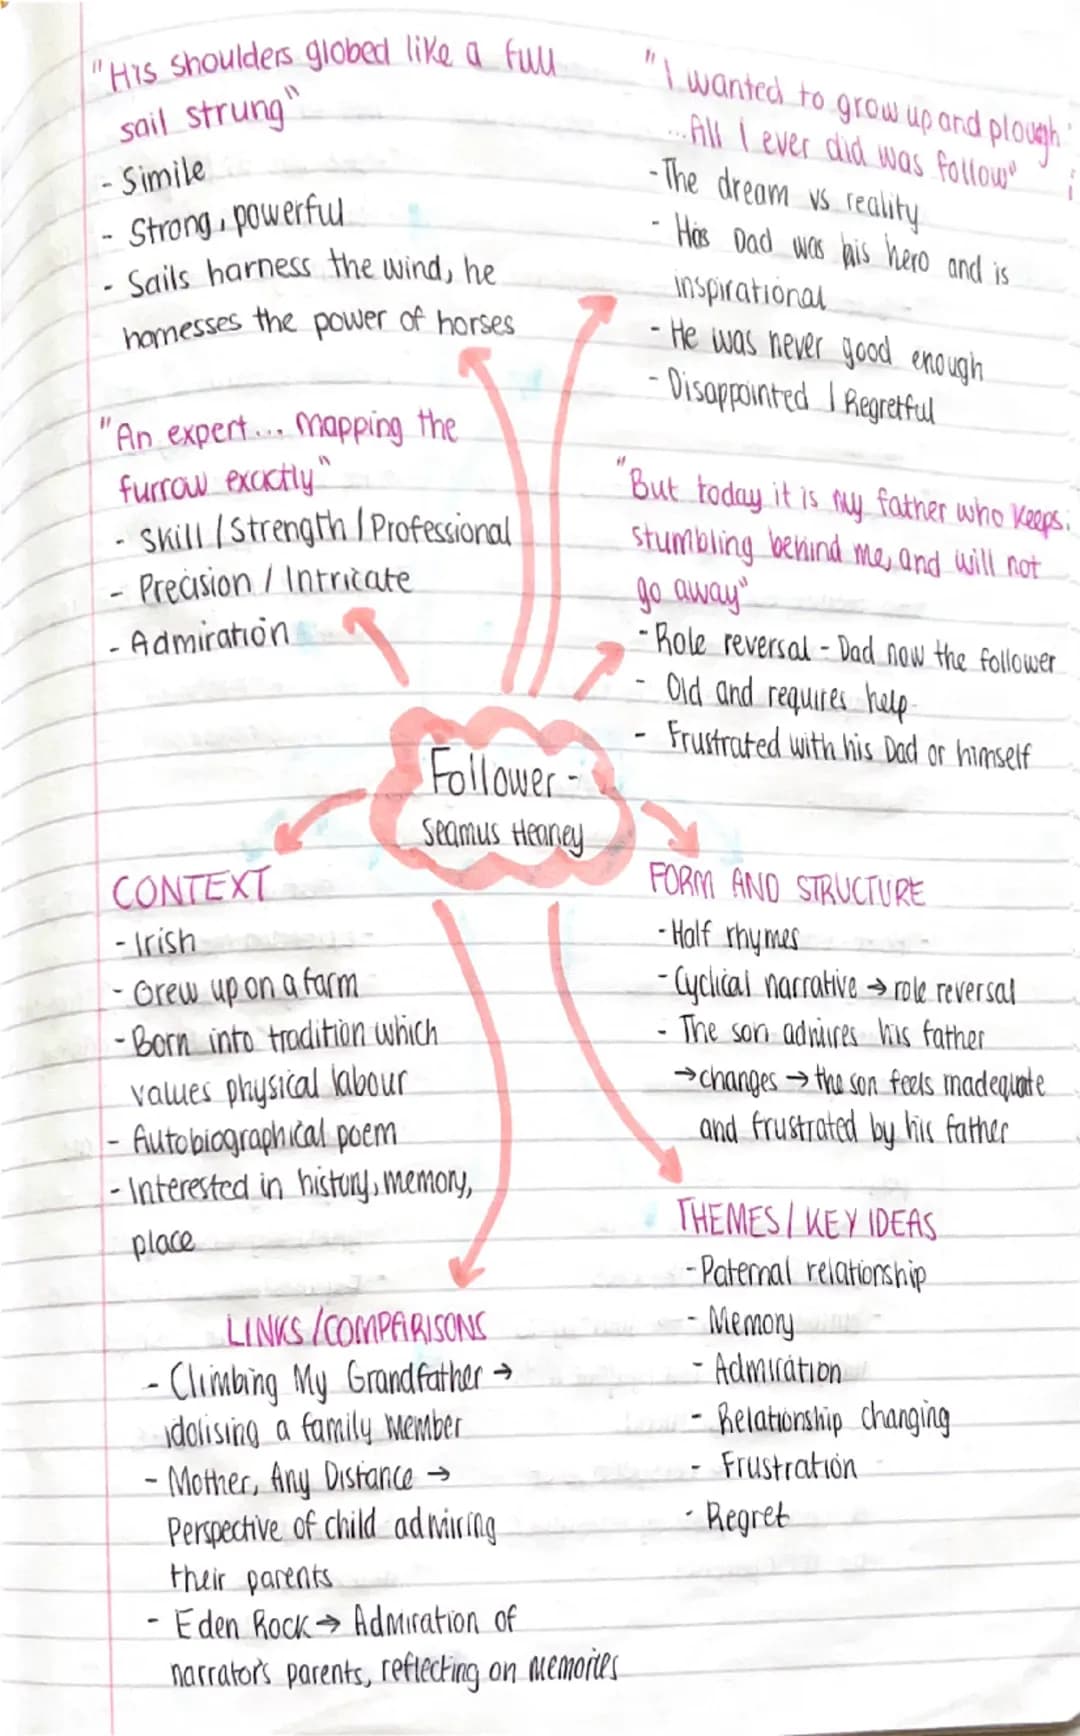 "His shoulders globed like a full
sail strung"
- Simile
- Strong, powerful
- Sails harness the wind, he
harnesses the power of horses
"An expert... Mapping the
furrow exactly"
- Skill / Strength / Professional
- Precision / Intricate
- Admiration
"I wanted to grow up and plough
...All I ever did was follow"
- The dream vs reality
- His Dad was his hero and is
inspirational
- He was never good enough
- Disappointed / Regretful
"But today it is my father who keeps
stumbling behind me, and will not
go away"
- Role reversal - Dad now the follower
- Old and requires help
- Frustrated with his Dad or himself
Follower -
Seamus Heaney
CONTEXT
- Irish
- Grew up on a farm
- Born into tradition which
values physical labour
- Autobiographical poem
- Interested in history, memory,
place
FORM AND STRUCTURE
- Half rhymes
- Cyclical narrative → role reversal
- The son admires his father
→ changes → the son feels inadequate
and frustrated by his father
LINKS / COMPARISONS
- Climbing My Grandfather →
idolising a family member
- Mother, Any Distance →
Perspective of child admiring
their parents
- Eden Rock → Admiration of
narrator's parents, reflecting on memories
THEMES / KEY IDEAS
- Paternal relationship
- Memory
- Admiration
- Relationship changing
- Frustration
- Regret